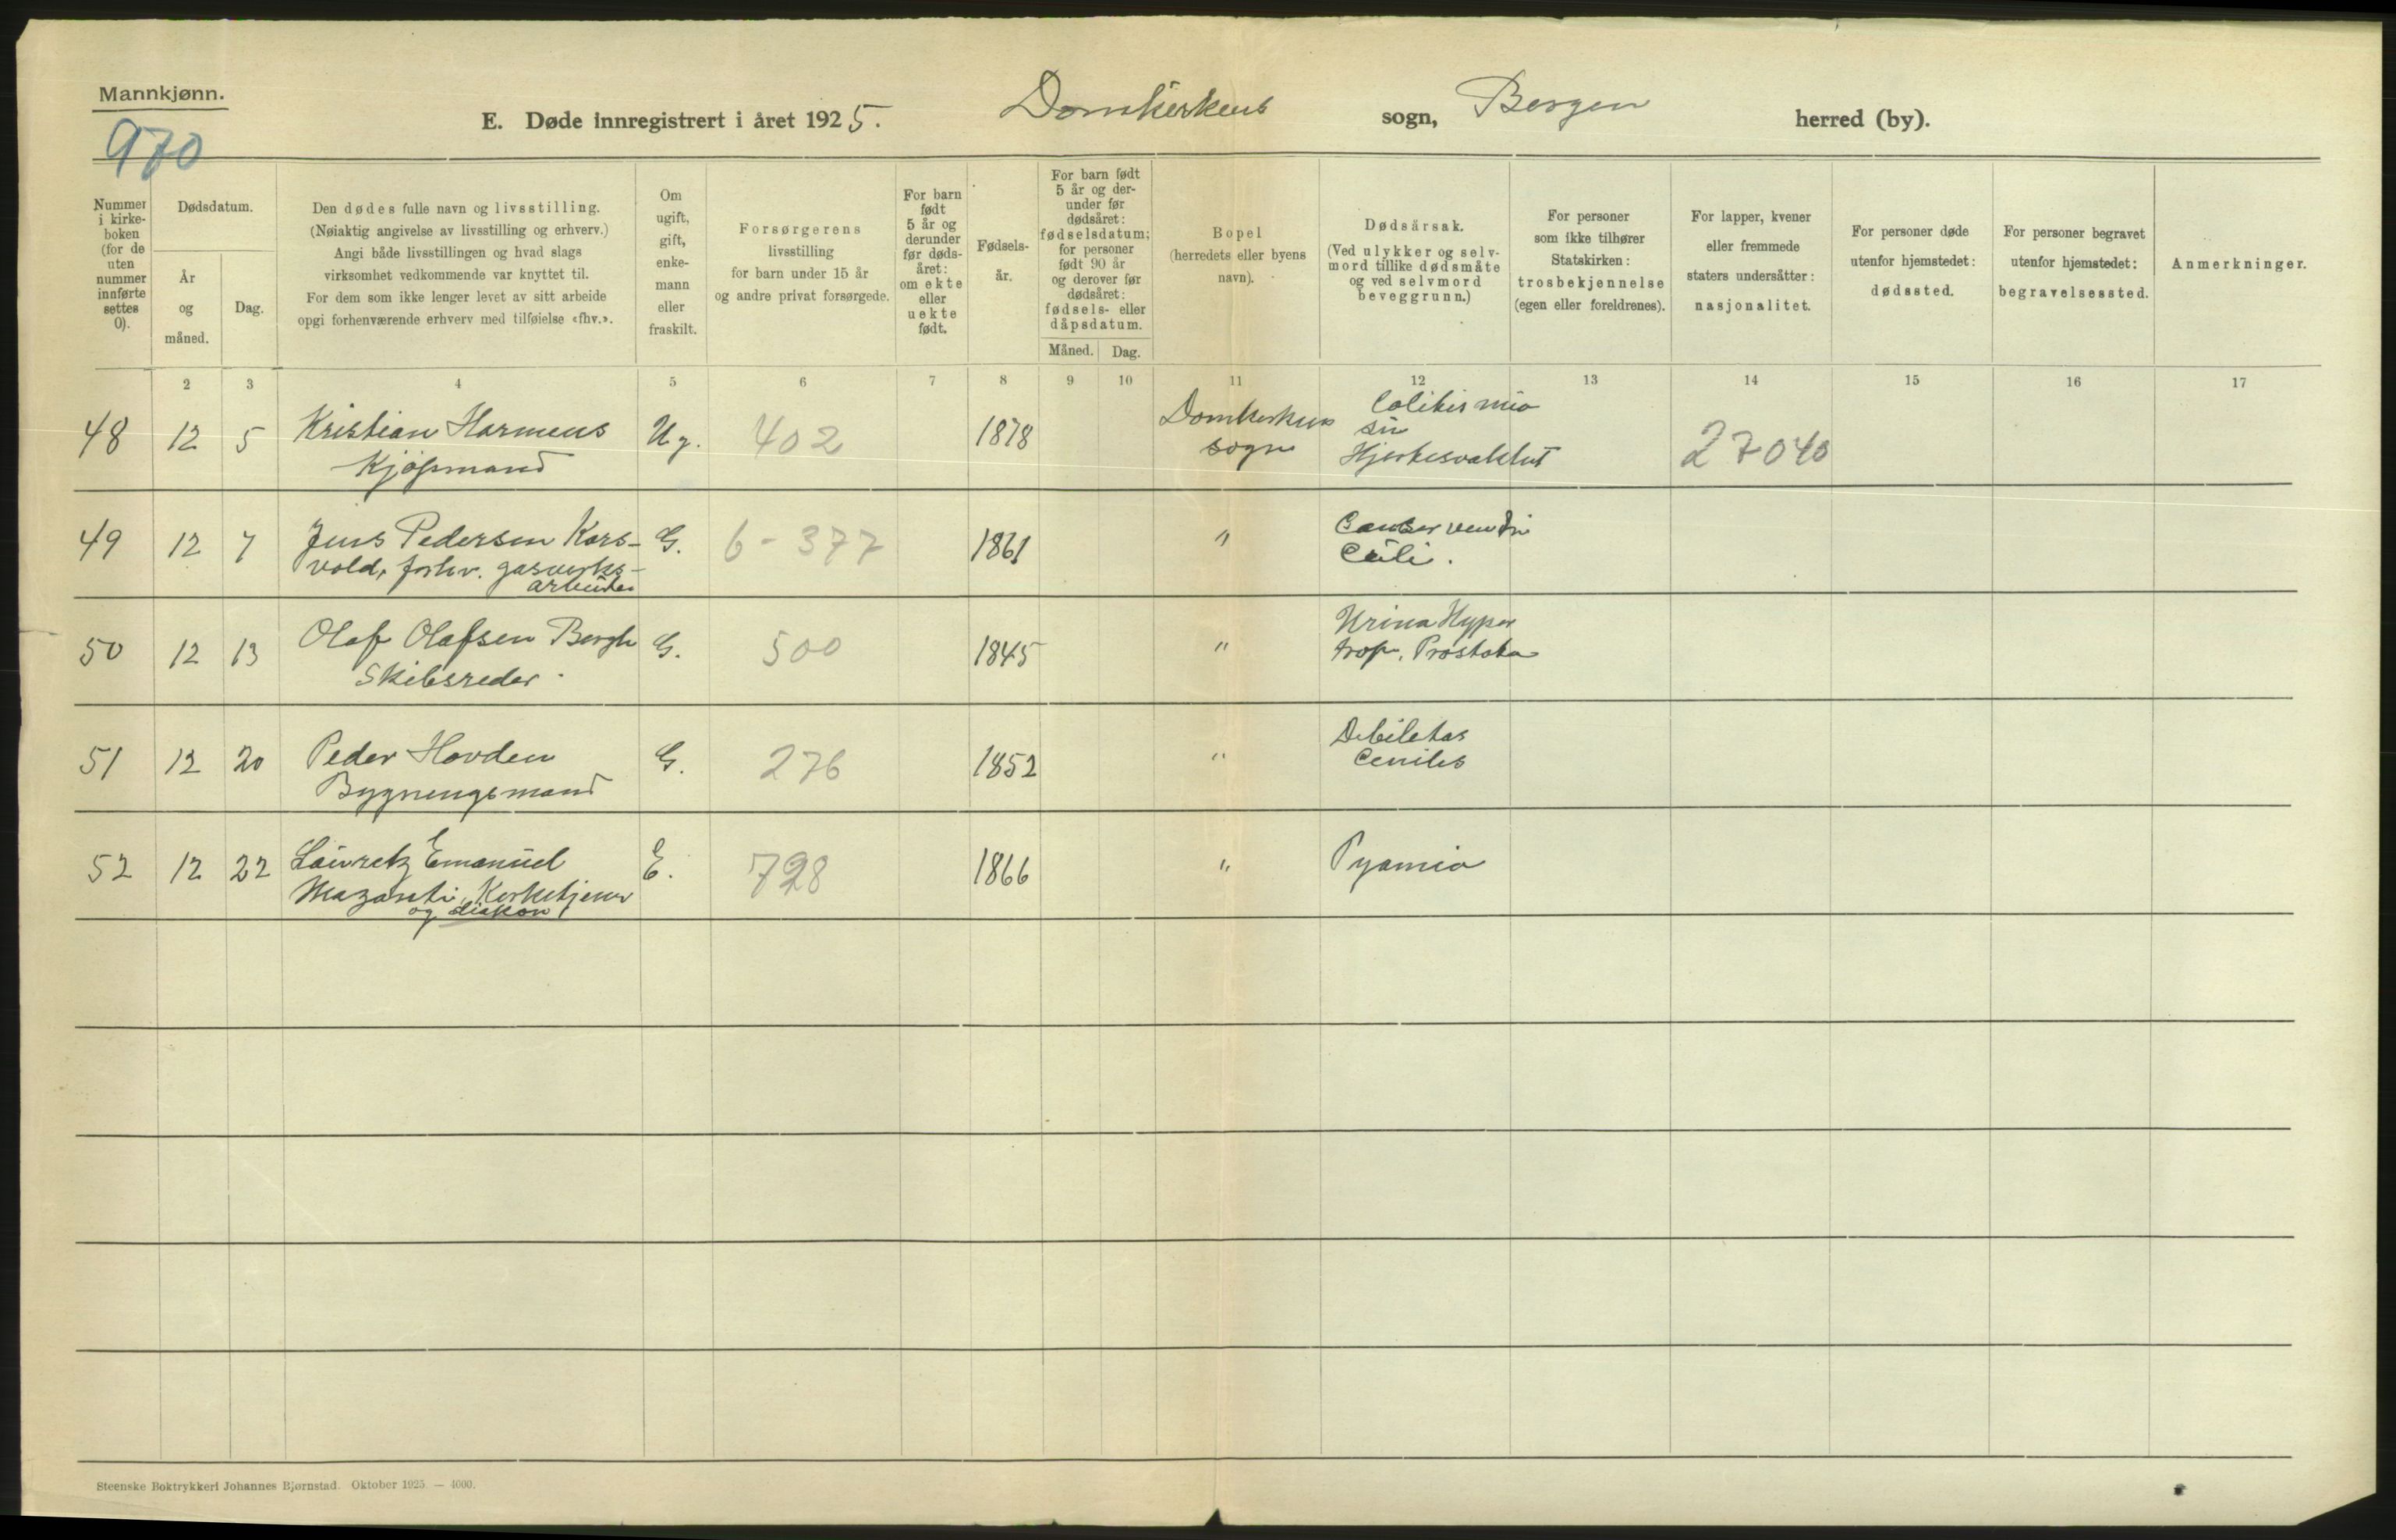 Mannkjønn.
970
E. Døde innregistrert i året 1925. Domkirkens sogn, Bergen herred (by).
Nummer i kirke-boken (for de uten nummer innførte settes 0).
Dødsdatum.
År og måned.
Dag.
Den dødes fulle navn og livsstilling.
(Nøiaktig angivelse av livsstilling og erhverv.)
Angi både livsstillingen og hvad slags
virksomhet vedkommende var knyttet til.
For dem som ikke lenger levet av sitt arbeide
opgi forhenværende erhverv med tilføielse «fhv.».
Om ugift, gift, enke-mann eller fraskilt.
Forsørgerens
livsstilling
for barn under 15 år
og andre privat forsørgede.
For barn født 5 år og derunder før døds-året: om ekte eller uekte født.
Fødsels-år.
For barn født 5 år og der-under før dødsåret: fødselsdatum; for personer født 90 år og derover før dødsåret: fødsels- eller dåpsdatum.
Måned.
Dag.
Bopel
(herredets eller byens
navn).
Dødsårsak.
(Ved ulykker og selv-
mord tillike dødsmåte
og ved selvmord
beveggrunn.)
For personer
som ikke tilhører
Statskirken:
trosbekjennelse
(egen eller foreldrenes).
For lapper, kvener
eller fremmede
staters undersåtter:
nasjonalitet.
For personer døde
utenfor hjemstedet:
dødssted.
For personer begravet
utenfor hjemstedet:
begravelsessted.
Anmerkninger.
2 3 4 5 6 7 8 9 10 11 12 13 14 15 16 17
48 12 5 Kristian Harmens Ug. 402 1878 Domkirkens
Kjøpmand sogn
Hjertesvakhet 27040
49 12 7 Jens Pedersen Kors- G. 6-377 1861 "
vold, forhv. gasverks-
arbeider
50 12 13 Olaf Olafsen Bergh G. 500 1845 " Urina Hyper
Skibsreder trop. Prostata
51 12 20 Peder Hovden G. 276 1852 " Debiletas
Bygningsmand Cenilis
52 12 22 Lauretz Emanuel E. 728 1866 " Pyamia
Mazanti, Kirketjener
og diakon
Steenske Boktrykkeri Johannes Bjørnstad. Oktober 1925 — 4000.